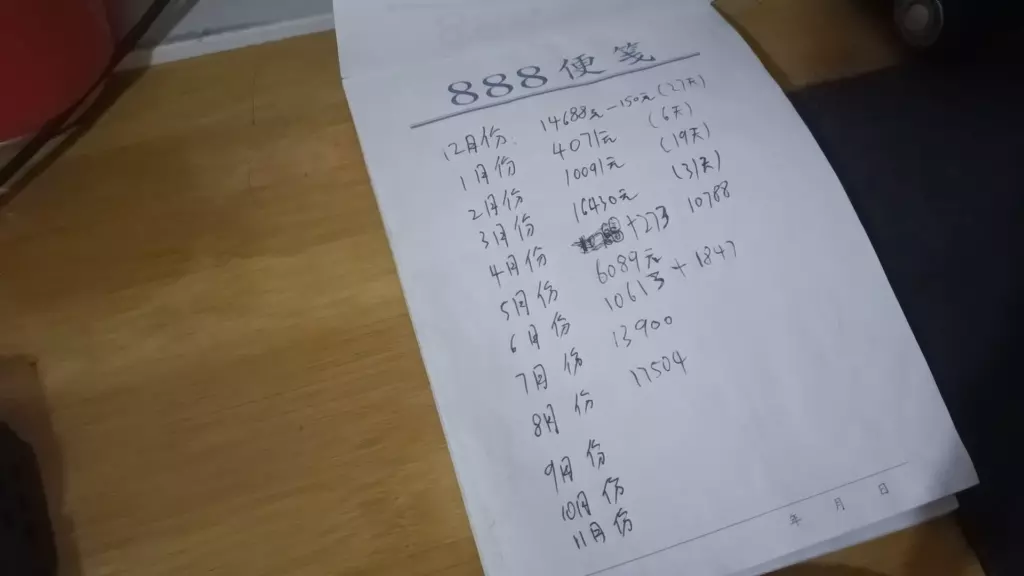 888便笺
12月份. 14688元-150元(27天)
1月份 4071元 (6天)
2月份 10091元 (19天)
3月份 16430元 (31天)
4月份 +273 10788
5月份 6089元
6月份 10613+1847
7月份 13900
8月份 17504
9月份
10月份
11月份
年 月 日